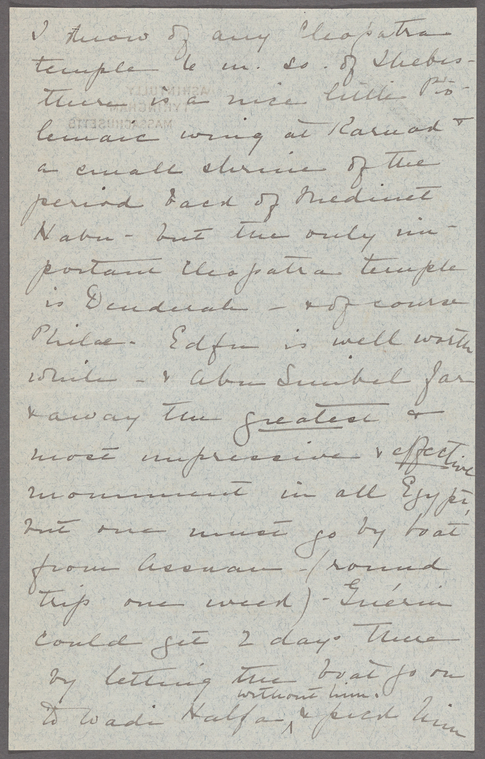 I know of any Cleopatra
temple 6 m. so. of Thebes-
there is a nice little Pto-
lemaic wing at Karnak &
a small shrine of the
period back of Medinet
Habu - but the only im-
portant Cleopatra temple
is Denderah - & of course
Philae. Edfu is well worth
while - & Abu Simbel far
& away the greatest &
most impressive & effective
monument in all Egypt,
but one must go by boat
from Assuan - (round
trip one week) - Guérin
could get 2 days there
by letting the boat go on
to Wadi Halfa without him. & pick him
ASHINTULLY
TYRINGHAM
MASSACHUSETTS